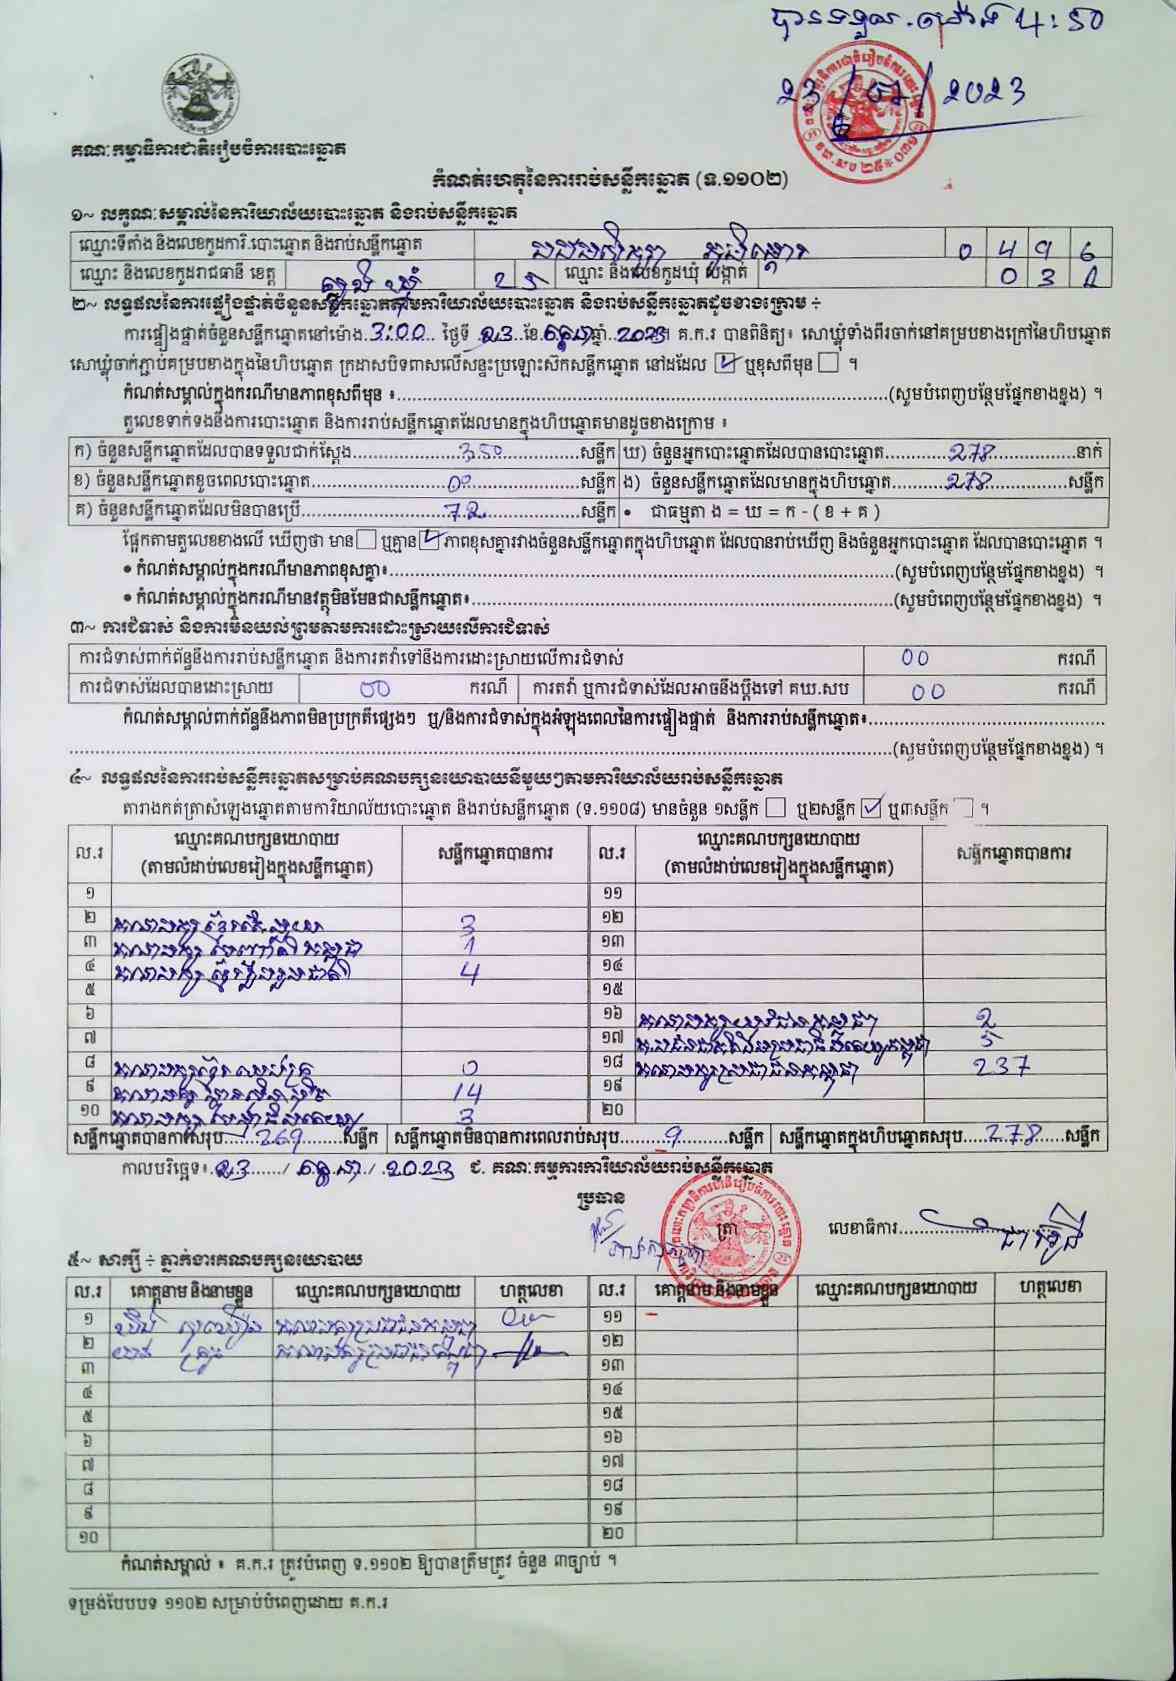 បានទទួល ម៉ោង 4:50
23 / ៧ / 2023
គណៈកម្មាធិការជាតិរៀបចំការបោះឆ្នោត
កំណត់ហេតុនៃការរាប់សន្លឹកឆ្នោត (ទ.១១០២)
១~ លក្ខណៈសម្គាល់នៃការិយាល័យបោះឆ្នោត និងរាប់សន្លឹកឆ្នោត
ឈ្មោះទីតាំង និងលេខកូដការិ.បោះឆ្នោត និងរាប់សន្លឹកឆ្នោត 0 4 9 6
ឈ្មោះ និងលេខកូដរាជធានី ខេត្ត 25 ឈ្មោះ និងលេខកូដឃុំ សង្កាត់ 0 3
២~ លទ្ធផលនៃការផ្ទៀងផ្ទាត់ចំនួនសន្លឹកឆ្នោតតាមការិយាល័យបោះឆ្នោត និងរាប់សន្លឹកឆ្នោតដូចខាងក្រោម ÷
ការផ្ទៀងផ្ទាត់ចំនួនសន្លឹកឆ្នោតនៅម៉ោង 3:00 ថ្ងៃទី 23 ខែ កក្កដា ឆ្នាំ 2023 គ.ក.រ បានពិនិត្យ៖ សោឃ្លុំទាំងពីរចាក់នៅគម្របខាងក្រៅនៃហិបឆ្នោត
សោឃ្លុំចាក់ភ្ជាប់គម្របខាងក្នុងនៃហិបឆ្នោត ក្រដាសបិទពាសលើសន្ទះប្រឡោះស៊កសន្លឹកឆ្នោត នៅដដែល ឬខុសពីមុន ។
កំណត់សម្គាល់ក្នុងករណីមានភាពខុសពីមុន ៖ (សូមបំពេញបន្ថែមផ្នែកខាងខ្នង) ។
តួលេខទាក់ទងនឹងការបោះឆ្នោត និងការរាប់សន្លឹកឆ្នោតដែលមានក្នុងហិបឆ្នោតមានដូចខាងក្រោម ៖
ក) ចំនួនសន្លឹកឆ្នោតដែលបានទទួលជាក់ស្តែង 350 សន្លឹក ឃ) ចំនួនអ្នកបោះឆ្នោតដែលបានបោះឆ្នោត 278 នាក់
ខ) ចំនួនសន្លឹកឆ្នោតខូចពេលបោះឆ្នោត 00 សន្លឹក ង) ចំនួនសន្លឹកឆ្នោតដែលមានក្នុងហិបឆ្នោត 278 សន្លឹក
គ) ចំនួនសន្លឹកឆ្នោតដែលមិនបានប្រើ 72 សន្លឹក • ជាធម្មតា ង = ឃ = ក - ( ខ + គ )
ផ្អែកតាមតួលេខខាងលើ ឃើញថា មាន ឬគ្មាន ភាពខុសគ្នារវាងចំនួនសន្លឹកឆ្នោតក្នុងហិបឆ្នោត ដែលបានរាប់ឃើញ និងចំនួនអ្នកបោះឆ្នោត ដែលបានបោះឆ្នោត ។
• កំណត់សម្គាល់ក្នុងករណីមានភាពខុសគ្នា៖ (សូមបំពេញបន្ថែមផ្នែកខាងខ្នង) ។
• កំណត់សម្គាល់ក្នុងករណីមានវត្ថុមិនមែនជាសន្លឹកឆ្នោត៖ (សូមបំពេញបន្ថែមផ្នែកខាងខ្នង) ។
៣~ ការជំទាស់ និងការមិនយល់ព្រមតាមការដោះស្រាយលើការជំទាស់
ការជំទាស់ពាក់ព័ន្ធនឹងការរាប់សន្លឹកឆ្នោត និងការតវ៉ាទៅនឹងការដោះស្រាយលើការជំទាស់ 00 ករណី
ការជំទាស់ដែលបានដោះស្រាយ 00 ករណី ការតវ៉ា ឬការជំទាស់ដែលអាចនឹងប្តឹងទៅ គឃ.សប 00 ករណី
កំណត់សម្គាល់ពាក់ព័ន្ធនឹងភាពមិនប្រក្រតីផ្សេងៗ ឬ/និងការជំទាស់ក្នុងអំឡុងពេលនៃការផ្ទៀងផ្ទាត់ និងការរាប់សន្លឹកឆ្នោត៖
(សូមបំពេញបន្ថែមផ្នែកខាងខ្នង) ។
៤~ លទ្ធផលនៃការរាប់សន្លឹកឆ្នោតសម្រាប់គណបក្សនយោបាយនីមួយៗតាមការិយាល័យរាប់សន្លឹកឆ្នោត
តារាងកត់ត្រាសំឡេងឆ្នោតតាមការិយាល័យបោះឆ្នោត និងរាប់សន្លឹកឆ្នោត (ទ.១១០៨) មានចំនួន ១សន្លឹក ឬ២សន្លឹក ឬ៣សន្លឹក ។
ល.រ ឈ្មោះគណបក្សនយោបាយ (តាមលំដាប់លេខរៀងក្នុងសន្លឹកឆ្នោត) សន្លឹកឆ្នោតបានការ ល.រ ឈ្មោះគណបក្សនយោបាយ (តាមលំដាប់លេខរៀងក្នុងសន្លឹកឆ្នោត) សន្លឹកឆ្នោតបានការ
១ ១១
២ 3 ១២
៣ 1 ១៣
៤ គណបក្សខ្មែររួបរួមជាតិ 4 ១៤
៥ ១៥
៦ ១៦ គណបក្សយុវជនកម្ពុជា 2
៧ ១៧ 5
៨ គណបក្សខ្មែរឈប់ក្រ 0 ១៨ គណបក្សប្រជាជនកម្ពុជា 237
៩ 14 ១៩
១០ 3 ២០
សន្លឹកឆ្នោតបានការសរុប 269 សន្លឹក សន្លឹកឆ្នោតមិនបានការពេលរាប់សរុប 9 សន្លឹក សន្លឹកឆ្នោតក្នុងហិបឆ្នោតសរុប 278 សន្លឹក
កាលបរិច្ឆេទ៖ 23 / កក្កដា / 2023 ជ. គណៈកម្មការការិយាល័យរាប់សន្លឹកឆ្នោត
ប្រធាន
ត្រា លេខាធិការ
៥~ សាក្សី ÷ ភ្នាក់ងារគណបក្សនយោបាយ
ល.រ គោត្តនាម និងនាមខ្លួន ឈ្មោះគណបក្សនយោបាយ ហត្ថលេខា ល.រ គោត្តនាម និងនាមខ្លួន ឈ្មោះគណបក្សនយោបាយ ហត្ថលេខា
១ គណបក្សប្រជាជនកម្ពុជា ១១
២ គណបក្សប្រជាជនកម្ពុជា ១២
៣ ១៣
៤ ១៤
៥ ១៥
៦ ១៦
៧ ១៧
៨ ១៨
៩ ១៩
១០ ២០
កំណត់សម្គាល់ ៖ គ.ក.រ ត្រូវបំពេញ ទ.១១០២ ឱ្យបានត្រឹមត្រូវ ចំនួន ៣ច្បាប់ ។
ទម្រង់បែបបទ ១១០២ សម្រាប់បំពេញដោយ គ.ក.រ